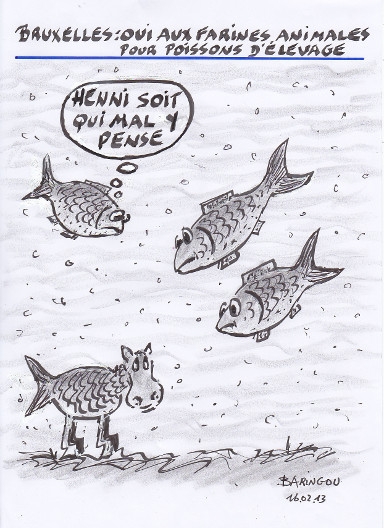 BRUXELLES: OUI AUX FARINES ANIMALES
POUR POISSONS D'ÉLEVAGE
HENNI SOIT
QUI MAL Y
PENSE
BARINGOU
16.02.13